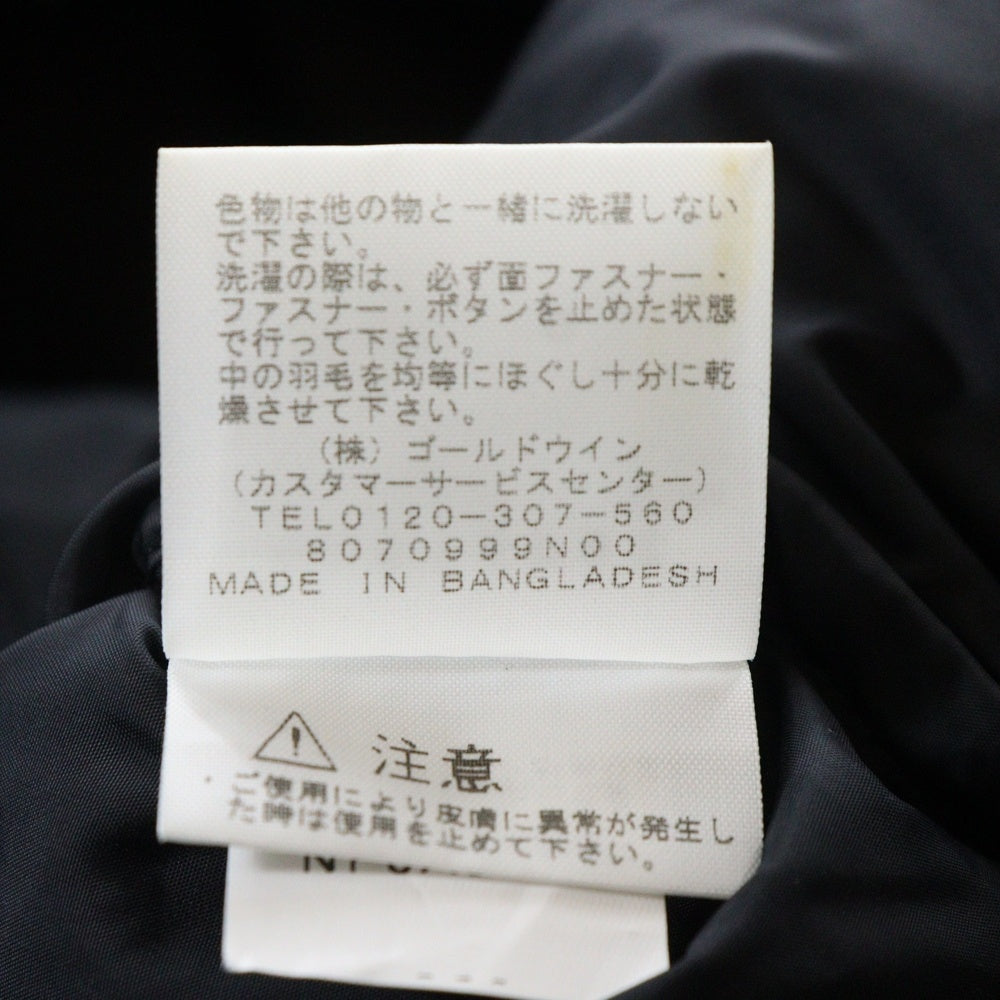 色物は他の物と一緒に洗濯しない
で下さい。
洗濯の際は、必ず面ファスナー・
ファスナー・ボタンを止めた状態
で行って下さい。
中の羽毛を均等にほぐし十分に乾
燥させて下さい。
(株)ゴールドウイン
(カスタマーサービスセンター)
TEL0120-307-560
8070999N00
MADE IN BANGLADESH
注意
・ご使用により皮膚に異常が発生し
た時は使用を止めて下さい。